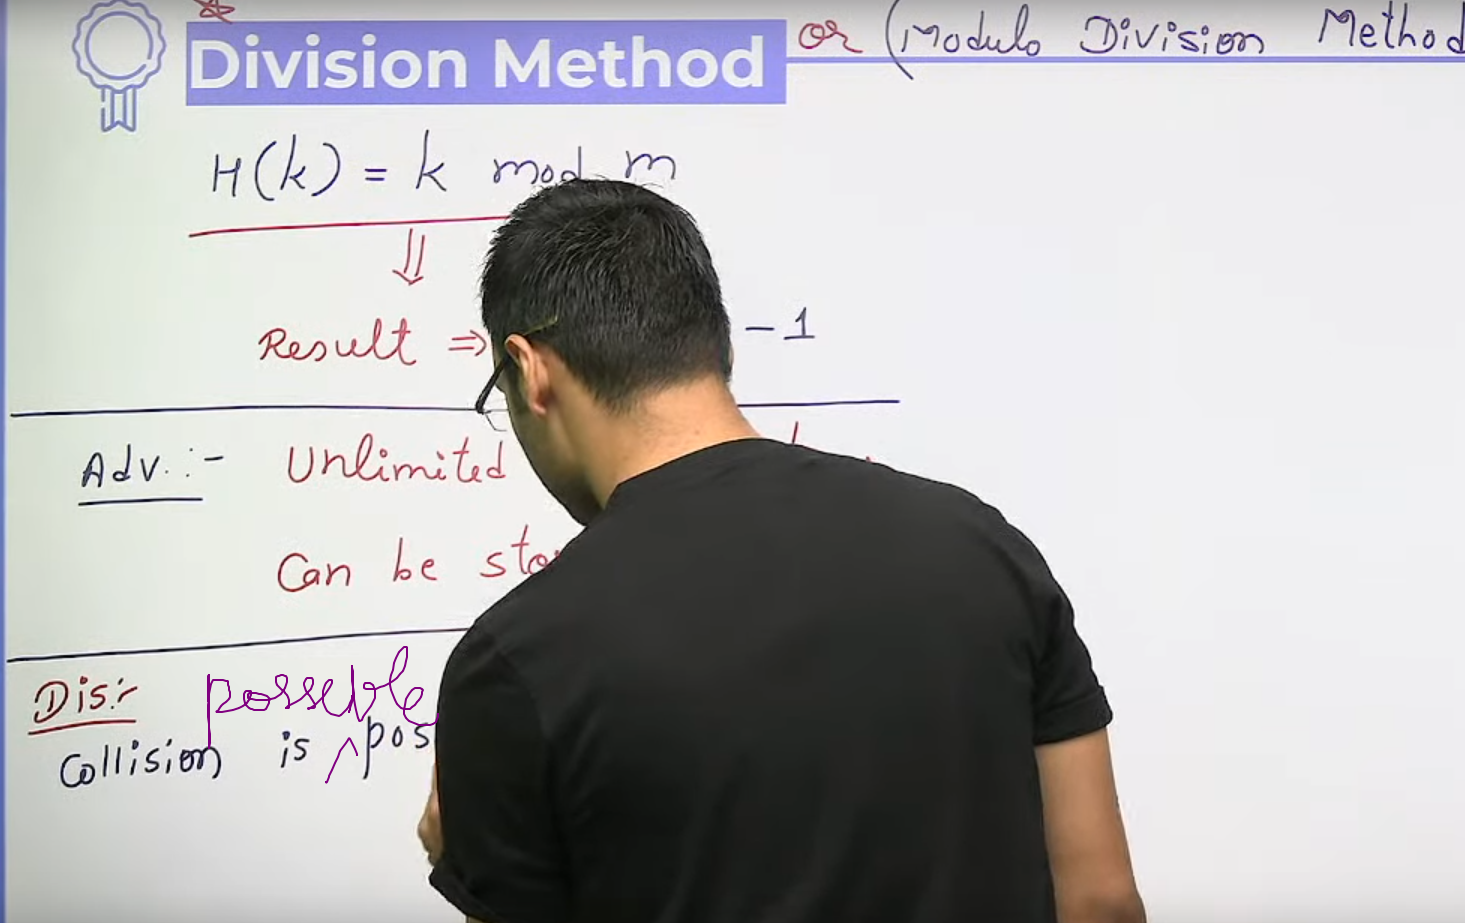 Division Method or (Modulo Division Method
H(k) = k mod m
⇓
Result ⇒ - 1
Adv. :- Unlimited
Can be sto
Dis:- possible
Collision is ^ pos